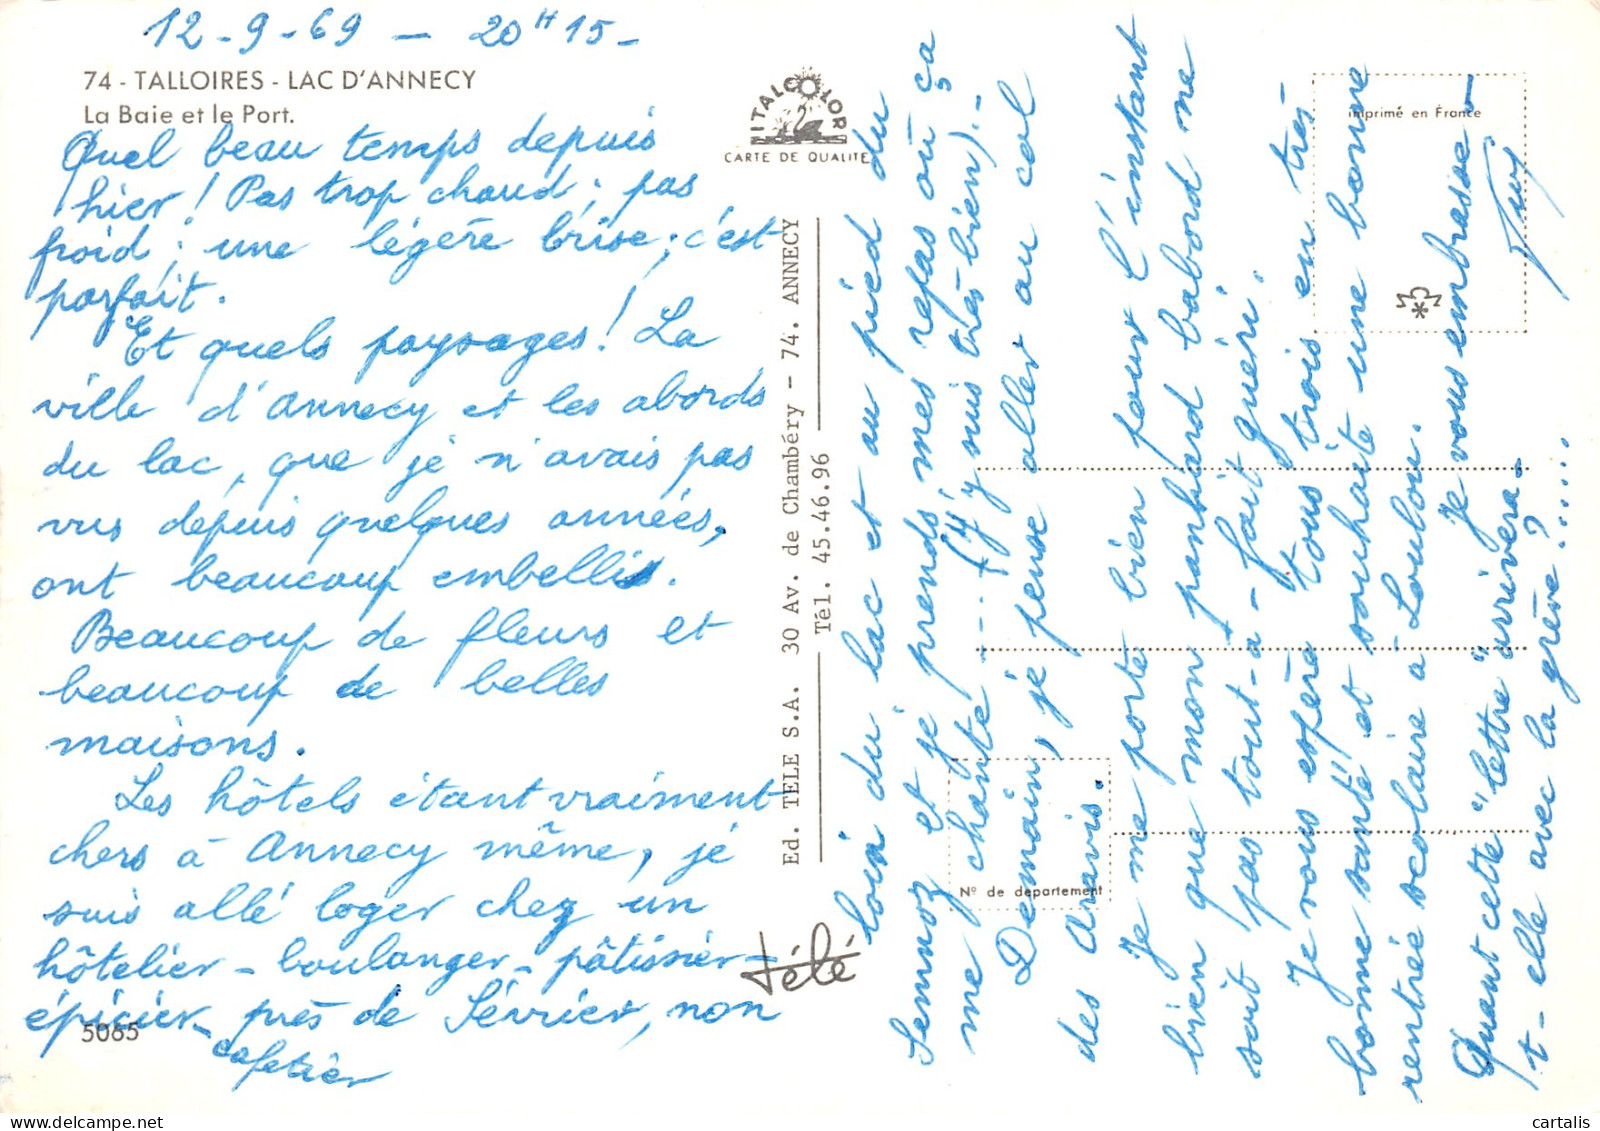 12-9-69 — 20H15-
74 - TALLOIRES - LAC D'ANNECY
La Baie et le Port.
Quel beau temps depuis
hier! Pas trop chaud; pas
froid; une légère brise; c'est
parfait.
Et quels paysages! La
ville d'Annecy et les abords
du lac, que je n'avais pas
vus depuis quelques années,
ont beaucoup embellis.
Beaucoup de fleurs et
beaucoup de belles
maisons.
Les hôtels étant vraiment
chers à Annecy même, je
suis allé loger chez un
hôtelier-boulanger-pâtissier-
épicier- près de Sévrier, non
-cafetier
5065
ITALCOLOR
CARTE DE QUALITE
Ed. TELE S.A. 30 Av. de Chambéry - 74. ANNECY
Tél. 45.46.96
télé
imprimé en France
Nº de département
loin du lac et au pied du
Semnoz et je prends mes repas où ça
me chante --- (j'y suis très bien).-
Demain, je pense aller au col
des Aravis.
Je me porte bien pour l'instant
bien que mon panbiard babord ne
soit pas tout-à-fait guéri.
Je vous espère tous trois en très
bonne santé et souhaite une bonne
rentrée scolaire à Loulou.
Je vous embrasse-
Quant cette "lettre" arrivera-
t-elle avec la grève?.....